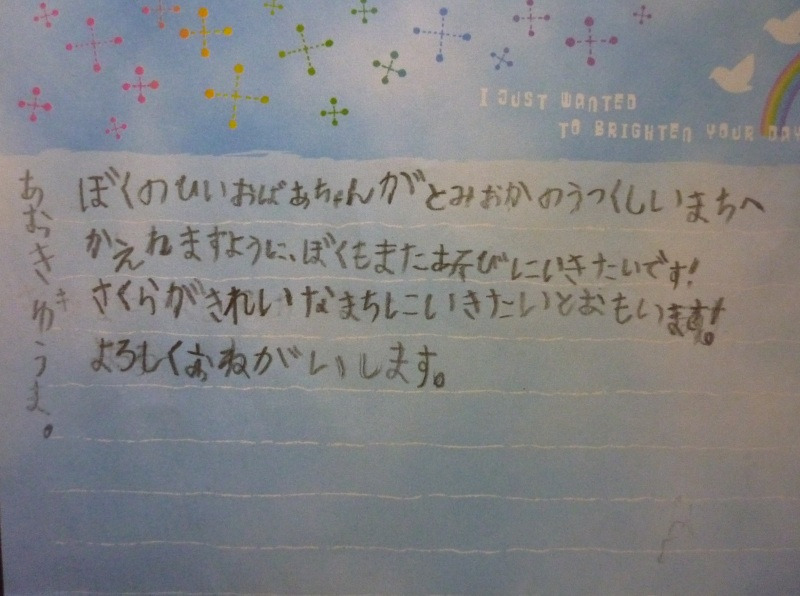 I JUST WANTED
TO BRIGHTEN YOUR DAY
ぼくのひいおばあちゃんがとみおかのうつくしいまちへ
かえれますように、ぼくもまたあそびにいきたいです!
さくらがきれいなまちにいきたいとおもいます!
よろしくおねがいします。
あおきゆうま。